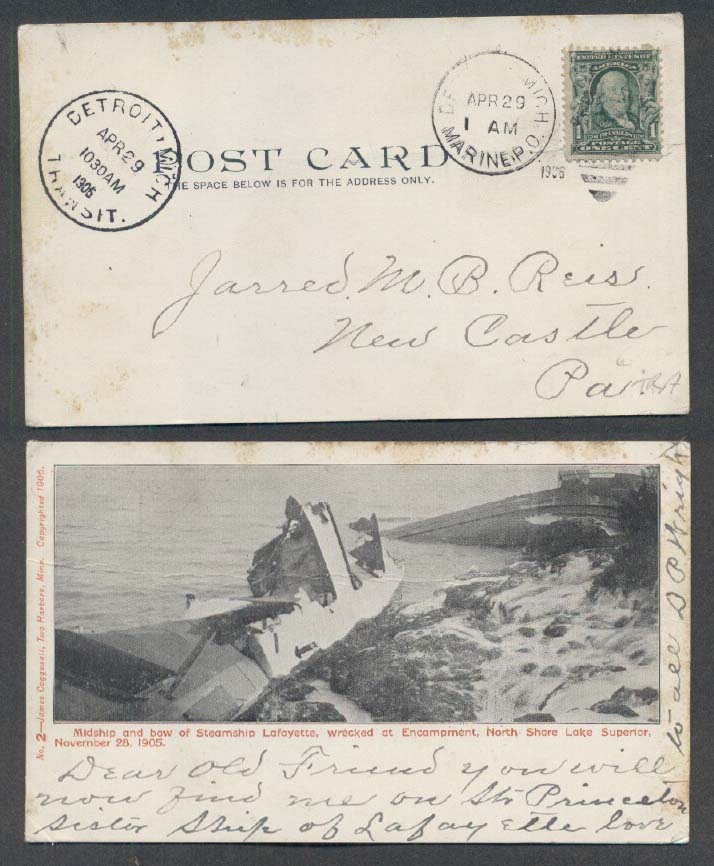 DETROIT, MICH
APR 29
1030AM
1906
TRANSIT.
MICH.
APR 29
1 AM
MARINE P.O.
1906
FRANKLIN
POSTAGE
ONE CENT
POST CARD
THE SPACE BELOW IS FOR THE ADDRESS ONLY.
Jarred. M. B. Reis.
New Castle
Pa
No. 2—James Coggswell, Two Harbors, Minn. Copyrighted 1906.
Midship and bow of Steamship Lafayette, wrecked at Encampment, North Shore Lake Superior,
November 28, 1905.
Dear Old Friend you will
now find me on Str Princeton
sister ship of Lafayette love
to all D P Wright